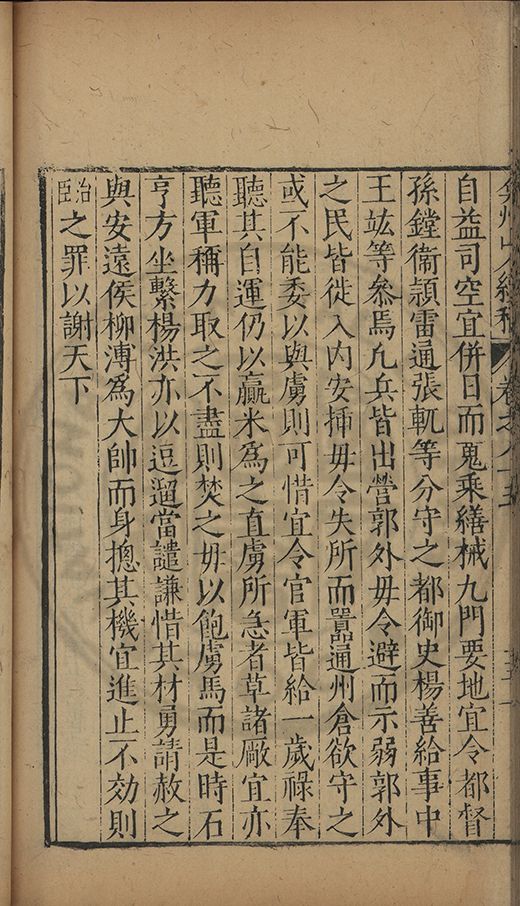 弇州山人續稿 卷之八十五
自益司空宜併日而蒐乘繕械九門要地宜令都督
孫鏜衞頴雷通張軏等分守之都御史楊善給事中
王竑等叅焉凢兵皆出營郭外毋令避而示弱郭外
之民皆徙入内安揷毋令失所而嚚通州倉欲守之
或不能委以與虜則可惜宜令官軍皆給一歲祿奉
聽其自運仍以羸米爲之直虜所急者草諸厰宜亦
聽軍稱力取之不盡則焚之毋以飽虜馬而是時石
亨方坐繫楊洪亦以逗遛當譴謙惜其材勇請赦之
與安遠侯柳溥爲大帥而身摠其機宜進止不効則
治臣之罪以謝天下